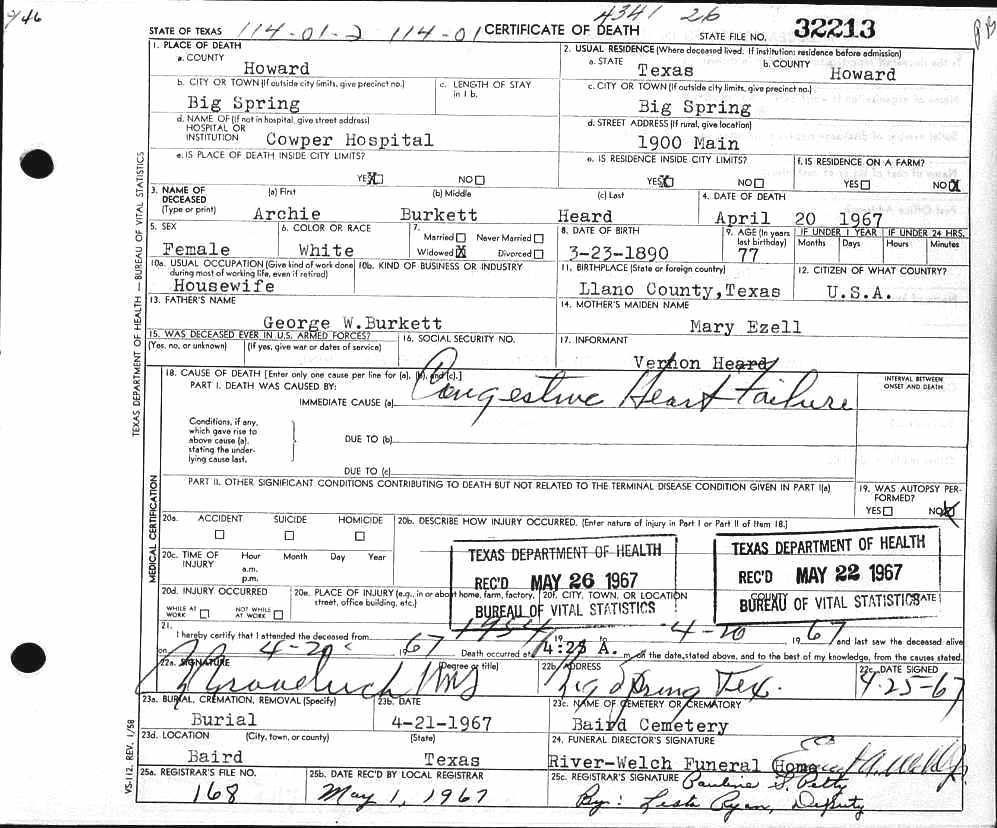 4341 26
1/46
STATE OF TEXAS 114-01-2 114-01 CERTIFICATE OF DEATH STATE FILE NO. 32213
1. PLACE OF DEATH
a. COUNTY
Howard
2. USUAL RESIDENCE (Where deceased lived. If institution: residence before admission)
a. STATE Texas b. COUNTY Howard
b. CITY OR TOWN (If outside city limits, give precinct no.)
Big Spring
c. LENGTH OF STAY in 1 b.
c. CITY OR TOWN (If outside city limits, give precinct no.)
Big Spring
d. NAME OF (If not in hospital, give street address)
HOSPITAL OR
INSTITUTION Cowper Hospital
d. STREET ADDRESS (If rural, give location)
1900 Main
e. IS PLACE OF DEATH INSIDE CITY LIMITS?
YES X NO
e. IS RESIDENCE INSIDE CITY LIMITS?
YES X NO
f. IS RESIDENCE ON A FARM?
YES NO X
3. NAME OF DECEASED (Type or print)
(a) First (b) Middle (c) Last
Archie Burkett Heard
4. DATE OF DEATH
April 20 1967
5. SEX
Female
6. COLOR OR RACE
White
7.
Married Never Married
Widowed X Divorced
8. DATE OF BIRTH
3-23-1890
9. AGE (In years last birthday)
77
IF UNDER 1 YEAR
Months Days
IF UNDER 24 HRS.
Hours Minutes
10a. USUAL OCCUPATION (Give kind of work done during most of working life, even if retired)
Housewife
10b. KIND OF BUSINESS OR INDUSTRY
11. BIRTHPLACE (State or foreign country)
Llano County,Texas
12. CITIZEN OF WHAT COUNTRY?
U.S.A.
13. FATHER'S NAME
George W.Burkett
14. MOTHER'S MAIDEN NAME
Mary Ezell
15. WAS DECEASED EVER IN U.S. ARMED FORCES?
(Yes, no, or unknown) (If yes, give war or dates of service)
16. SOCIAL SECURITY NO.
17. INFORMANT
Vernon Heard
18. CAUSE OF DEATH [Enter only one cause per line for (a), (b), and (c).]
PART I. DEATH WAS CAUSED BY:
IMMEDIATE CAUSE (a) Congestive Heart Failure
INTERVAL BETWEEN ONSET AND DEATH
Conditions, if any,
which gave rise to
above cause (a),
stating the under-
lying cause last.
DUE TO (b)
DUE TO (c)
PART II. OTHER SIGNIFICANT CONDITIONS CONTRIBUTING TO DEATH BUT NOT RELATED TO THE TERMINAL DISEASE CONDITION GIVEN IN PART I(a)
19. WAS AUTOPSY PER-
FORMED?
YES NO X
20a. ACCIDENT SUICIDE HOMICIDE
20b. DESCRIBE HOW INJURY OCCURRED. (Enter nature of injury in Part I or Part II of Item 18.)
20c. TIME OF INJURY
Hour Month Day Year
a.m.
p.m.
TEXAS DEPARTMENT OF HEALTH
REC'D MAY 26 1967
BUREAU OF VITAL STATISTICS
TEXAS DEPARTMENT OF HEALTH
REC'D MAY 22 1967
BUREAU OF VITAL STATISTICS
20d. INJURY OCCURRED
WHILE AT WORK NOT WHILE AT WORK
20e. PLACE OF INJURY (e.g., in or about home, farm, factory, street, office building, etc.)
20f. CITY, TOWN, OR LOCATION COUNTY STATE
21.
I hereby certify that I attended the deceased from 1954 19 4-20 1967 and last saw the deceased alive
on 4-20 1967 Death occurred at 4:23 A. m. on the date stated above, and to the best of my knowledge, from the causes stated.
22a. SIGNATURE (Degree or title)
22b. ADDRESS
Big Spring Tex.
22c. DATE SIGNED
4-25-67
23a. BURIAL, CREMATION, REMOVAL (Specify)
Burial
23b. DATE
4-21-1967
23c. NAME OF CEMETERY OR CREMATORY
Baird Cemetery
23d. LOCATION (City, town, or county) (State)
Baird Texas
24. FUNERAL DIRECTOR'S SIGNATURE
River-Welch Funeral Home
25a. REGISTRAR'S FILE NO.
168
25b. DATE REC'D BY LOCAL REGISTRAR
May 1, 1967
25c. REGISTRAR'S SIGNATURE Pauline S. Petty
By: Ryan, Deputy
TEXAS DEPARTMENT OF HEALTH — BUREAU OF VITAL STATISTICS
MEDICAL CERTIFICATION
VS-112, REV. 1/58